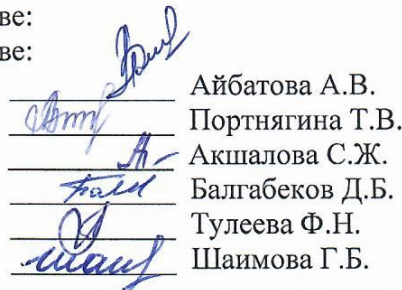 ве:
ве:
Айбатова А.В.
Портнягина Т.В.
Акшалова С.Ж.
Балгабеков Д.Б.
Тулеева Ф.Н.
Шаимова Г.Б.